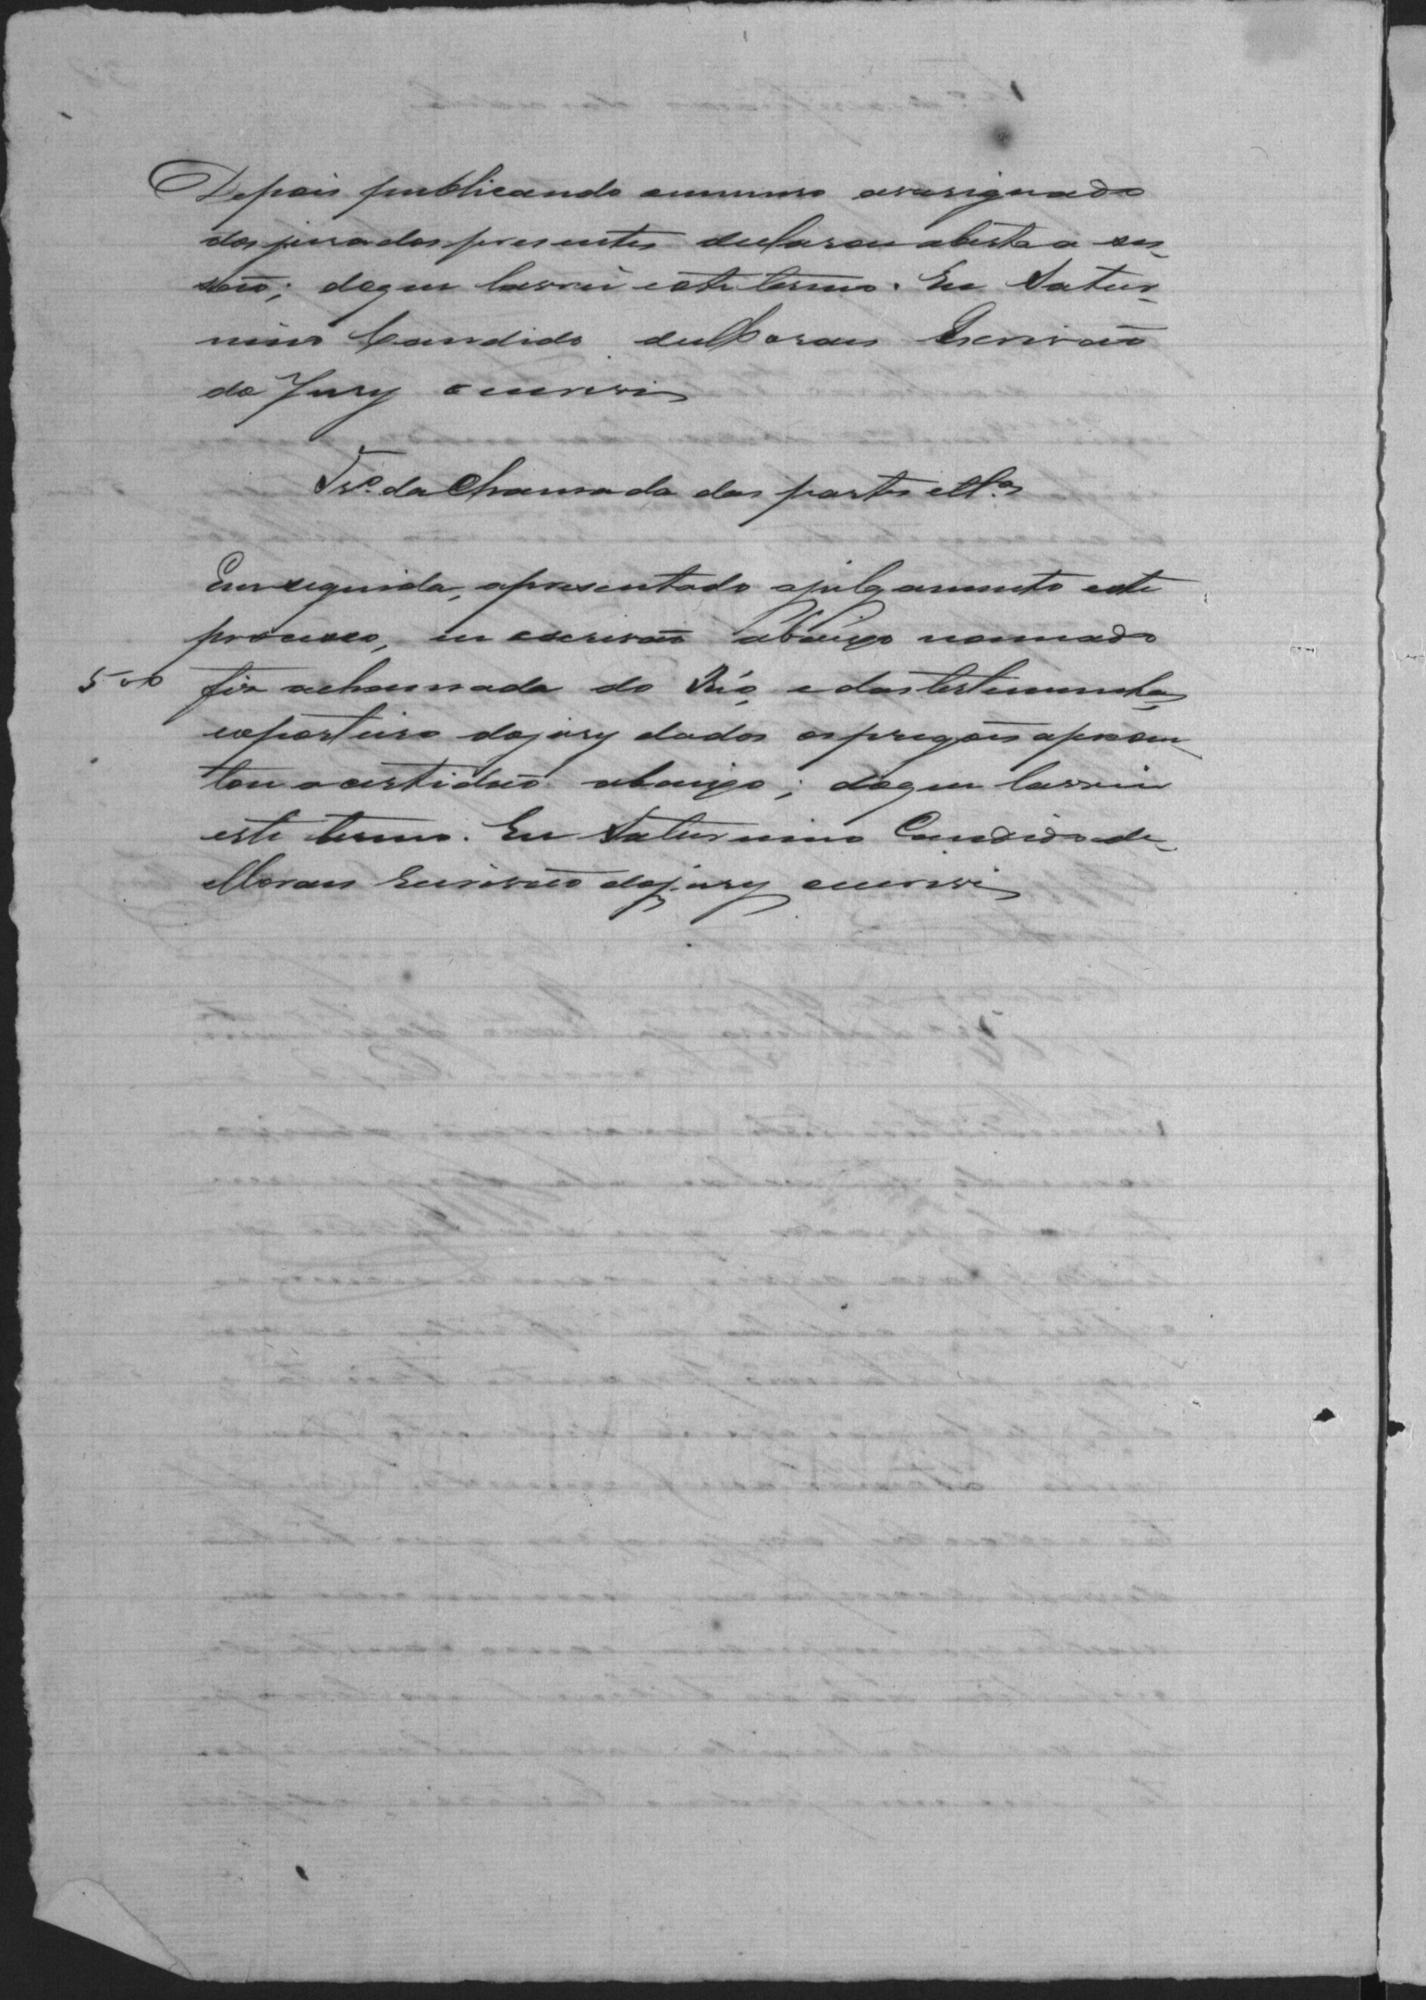 Depois publicando onumero averiguado
dos jurados presentes declarou aberta a ses-
são; do que lavrei este termo. Eu Satur-
nino Candido de Moraes Escrivão
do Jury o escrevi
Tr.º da Chamada das partes e tt.as
Em seguida, apresentado a julgamento este
processo, eu escrivão abaixo nomeado
500 fiz a chamada do Réo, e das testemunhas,
e o porteiro do jury dados os pregões apresen-
tou a certidão abaixo; do que lavrei
este termo. Eu Saturnino Candido de
Moraes Escrivão do jury o escrevi